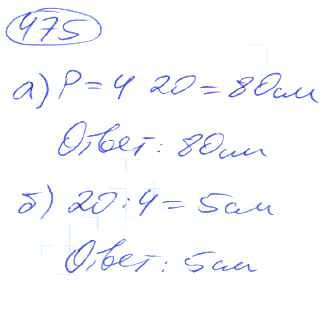 475
а) P = 4 20 = 80см
Ответ: 80см
б) 20 : 4 = 5см
Ответ: 5см